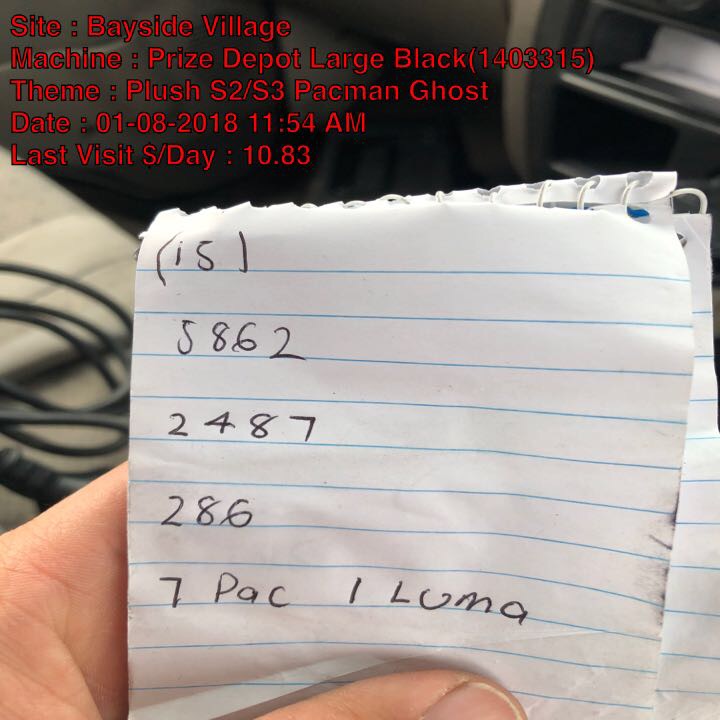 Site : Bayside Village
Machine : Prize Depot Large Black(1403315)
Theme : Plush S2/S3 Pacman Ghost
Date : 01-08-2018 11:54 AM
Last Visit $/Day : 10.83
(15)
5862
2487
286
7 Pac 1 Luma